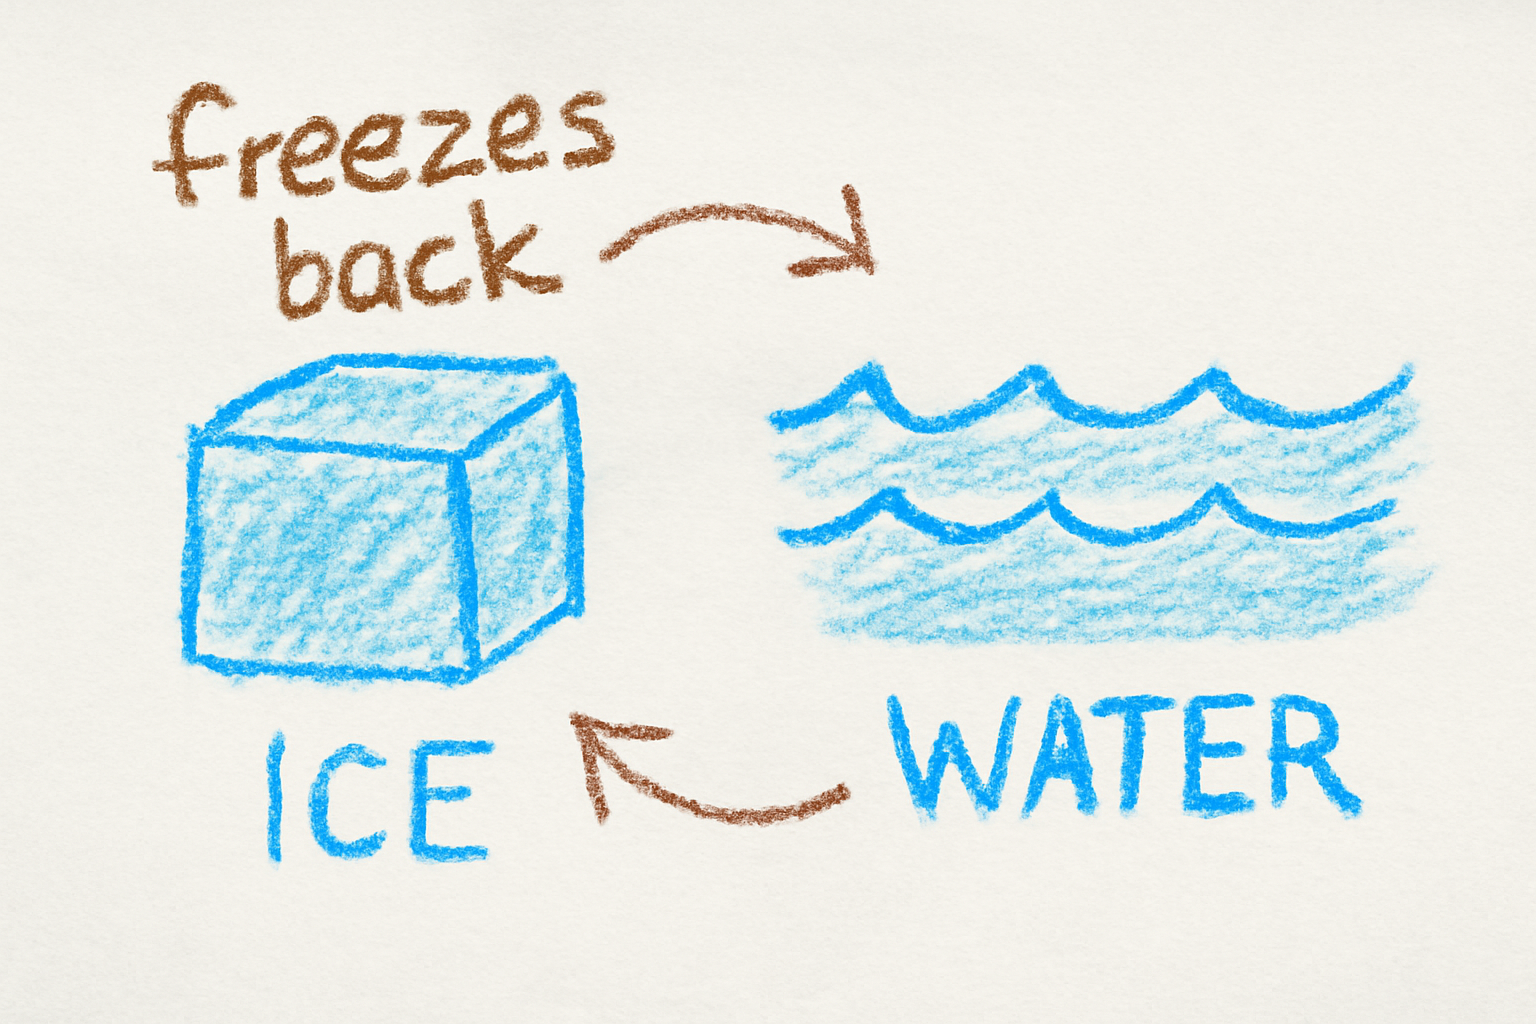 freezes
back
ICE
WATER